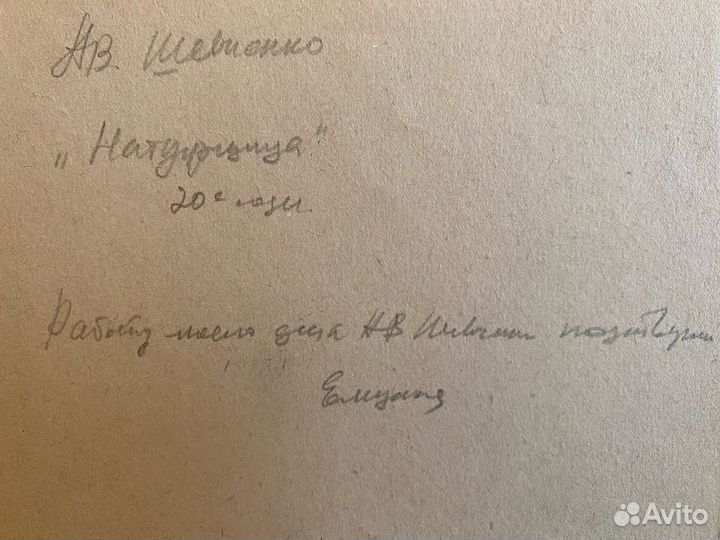 АВ. Шевченко
„Натурщица"
20е годы
Работу моего деда АВ Шевченко подтверждаю
Avito